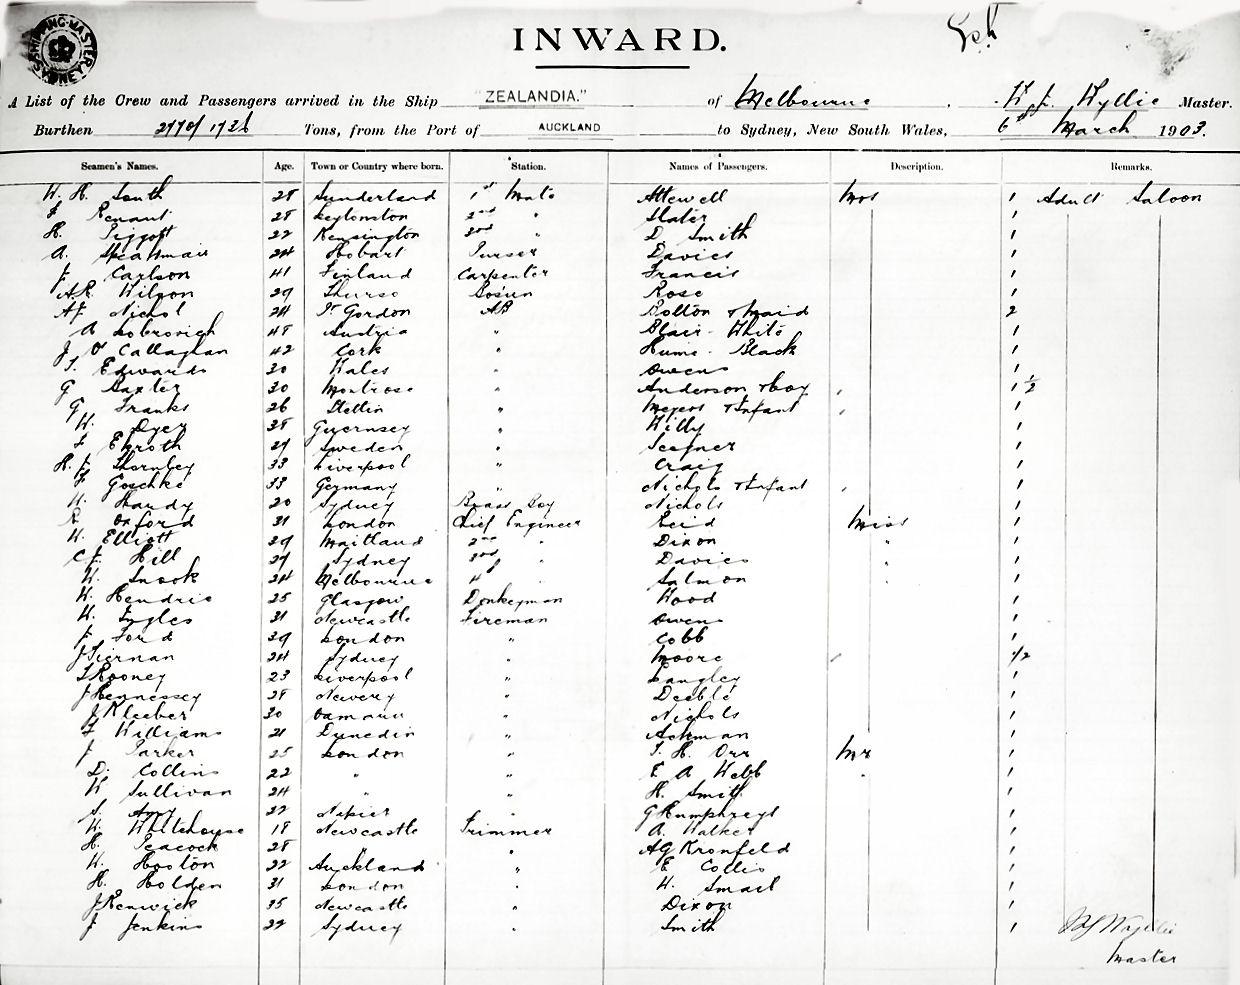 SHIPPING MASTER SYDNEY
INWARD.
A List of the Crew and Passengers arrived in the Ship "ZEALANDIA." of Melbourne, W. J. Wyllie Master.
Burthen Tons, from the Port of AUCKLAND to Sydney, New South Wales, 6th March 1903.
Seamen's Names. Age. Town or Country where born. Station. Names of Passengers. Description. Remarks.
W. H. South 28 Sunderland 1st Mate Attewell Mrs 1 Adult Saloon
Renaut 28 2nd " Slater 1
H. Piggott 22 Kensington 3rd " D Smith 1
A. 24 Hobart Purser Davies 1
J. Carlson 41 Finland Carpenter Francis 1
A.R. Wilson 29 Thurso Bosun Rose 1
A.J. Nichol 24 Pt Gordon AB Bolton & Maid 2
A 48 Austria " Blair-White 1
J O'Callaghan 42 Cork " Hume-Black 1
T. Edwards 30 Wales " Owens 1
G Baxter 30 Montrose " Anderson & boy 1 1/2
G Franks 26 Stettin " Meyers & Infant 1
W. Dyer 38 Guernsey " Willy 1
F Ekroth 29 Sweden " 1
H. J. Thornley 33 Liverpool " Craig 1
F Goschke 33 Germany " Nichols & Infant 1
W. Hardy 20 Sydney Brass Boy Nichols 1
R Oxford 31 London Chief Engineer Reid Miss 1
W. Elliott 29 Maitland 2nd " Dixon " 1
C J. Hill 29 Sydney 3rd " Davies " 1
W. Snook 24 Melbourne 4th " Salmon " 1
W. Hendrie 25 Glasgow Donkeyman Wood 1
W. Eyles 31 Newcastle Fireman Owens 1
J. Ford 39 London " Cobb 1
J Tiernan 24 Sydney " Moore 1/2
T Rooney 23 Liverpool " Langley 1
J Hennessey 28 Newery " Deeble 1
J Kleeber 30 Oamaru " Nichols 1
F Williams 21 Dunedin " Ackman 1
J Parker 25 London " T. H. Orr Mr 1
D. Collins 22 " " E A Webb " 1
W Sullivan 24 " " H. Smith 1
S. Amy 22 Napier " G Humphreys 1
W. Whitehouse 18 Newcastle Trimmer A. Walker 1
H. Peacock 28 " " A G Kronfeld 1
W. Hooton 22 Auckland " E Collis 1
H. Holden 31 London " W. Smail 1
J Renwick 35 Newcastle " Dixon 1
J Jenkins 32 Sydney " Smith 1
W J Wyllie
Master